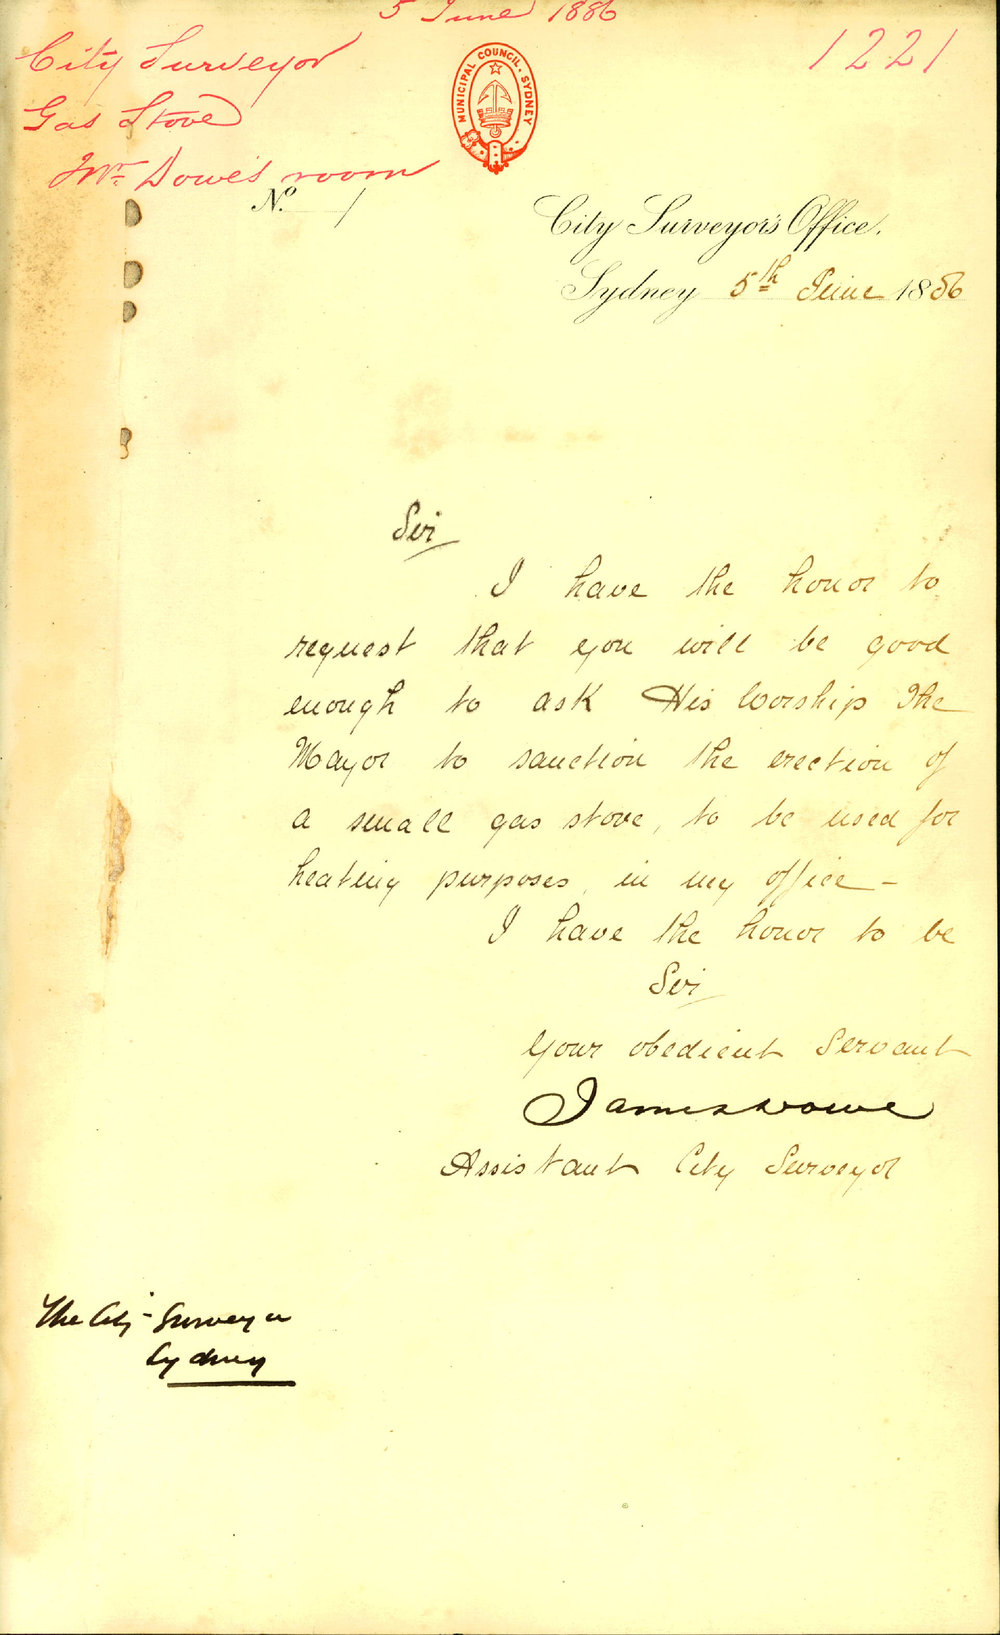 5 June 1886
City Surveyor
Gas Stove
Mr. Dowe's room
1221
MUNICIPAL COUNCIL. SYDNEY
No. /
City Surveyor's Office.
Sydney 5th June 1886
Sir
I have the honor to
request that you will be good
enough to ask His Worship The
Mayor to sanction the erection of
a small gas stove, to be used for
heating purposes, in my office -
I have the honor to be
Sir
Your obedient Servant
James Dowe
Assistant City Surveyor
The City Surveyor
Sydney